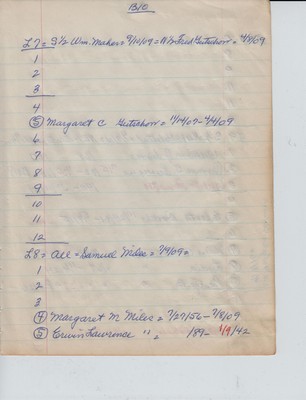 B10
L7 = S 1/2 Wm. Maher = 9/10/09 = N 1/2 Fred Gutschow =
1
2
3
4
⑤ Margaret C Gutschow = 11/14/07 - 7/4/09
6
7
8
9
10
11
12
L8 = All = Samuel Miles = 7/9/09 =
1
2
3
④ Margaret M Miles = 7/27/56 - 7/8/09
⑤ Erwin Lawrence " = /89 - 1/9/42